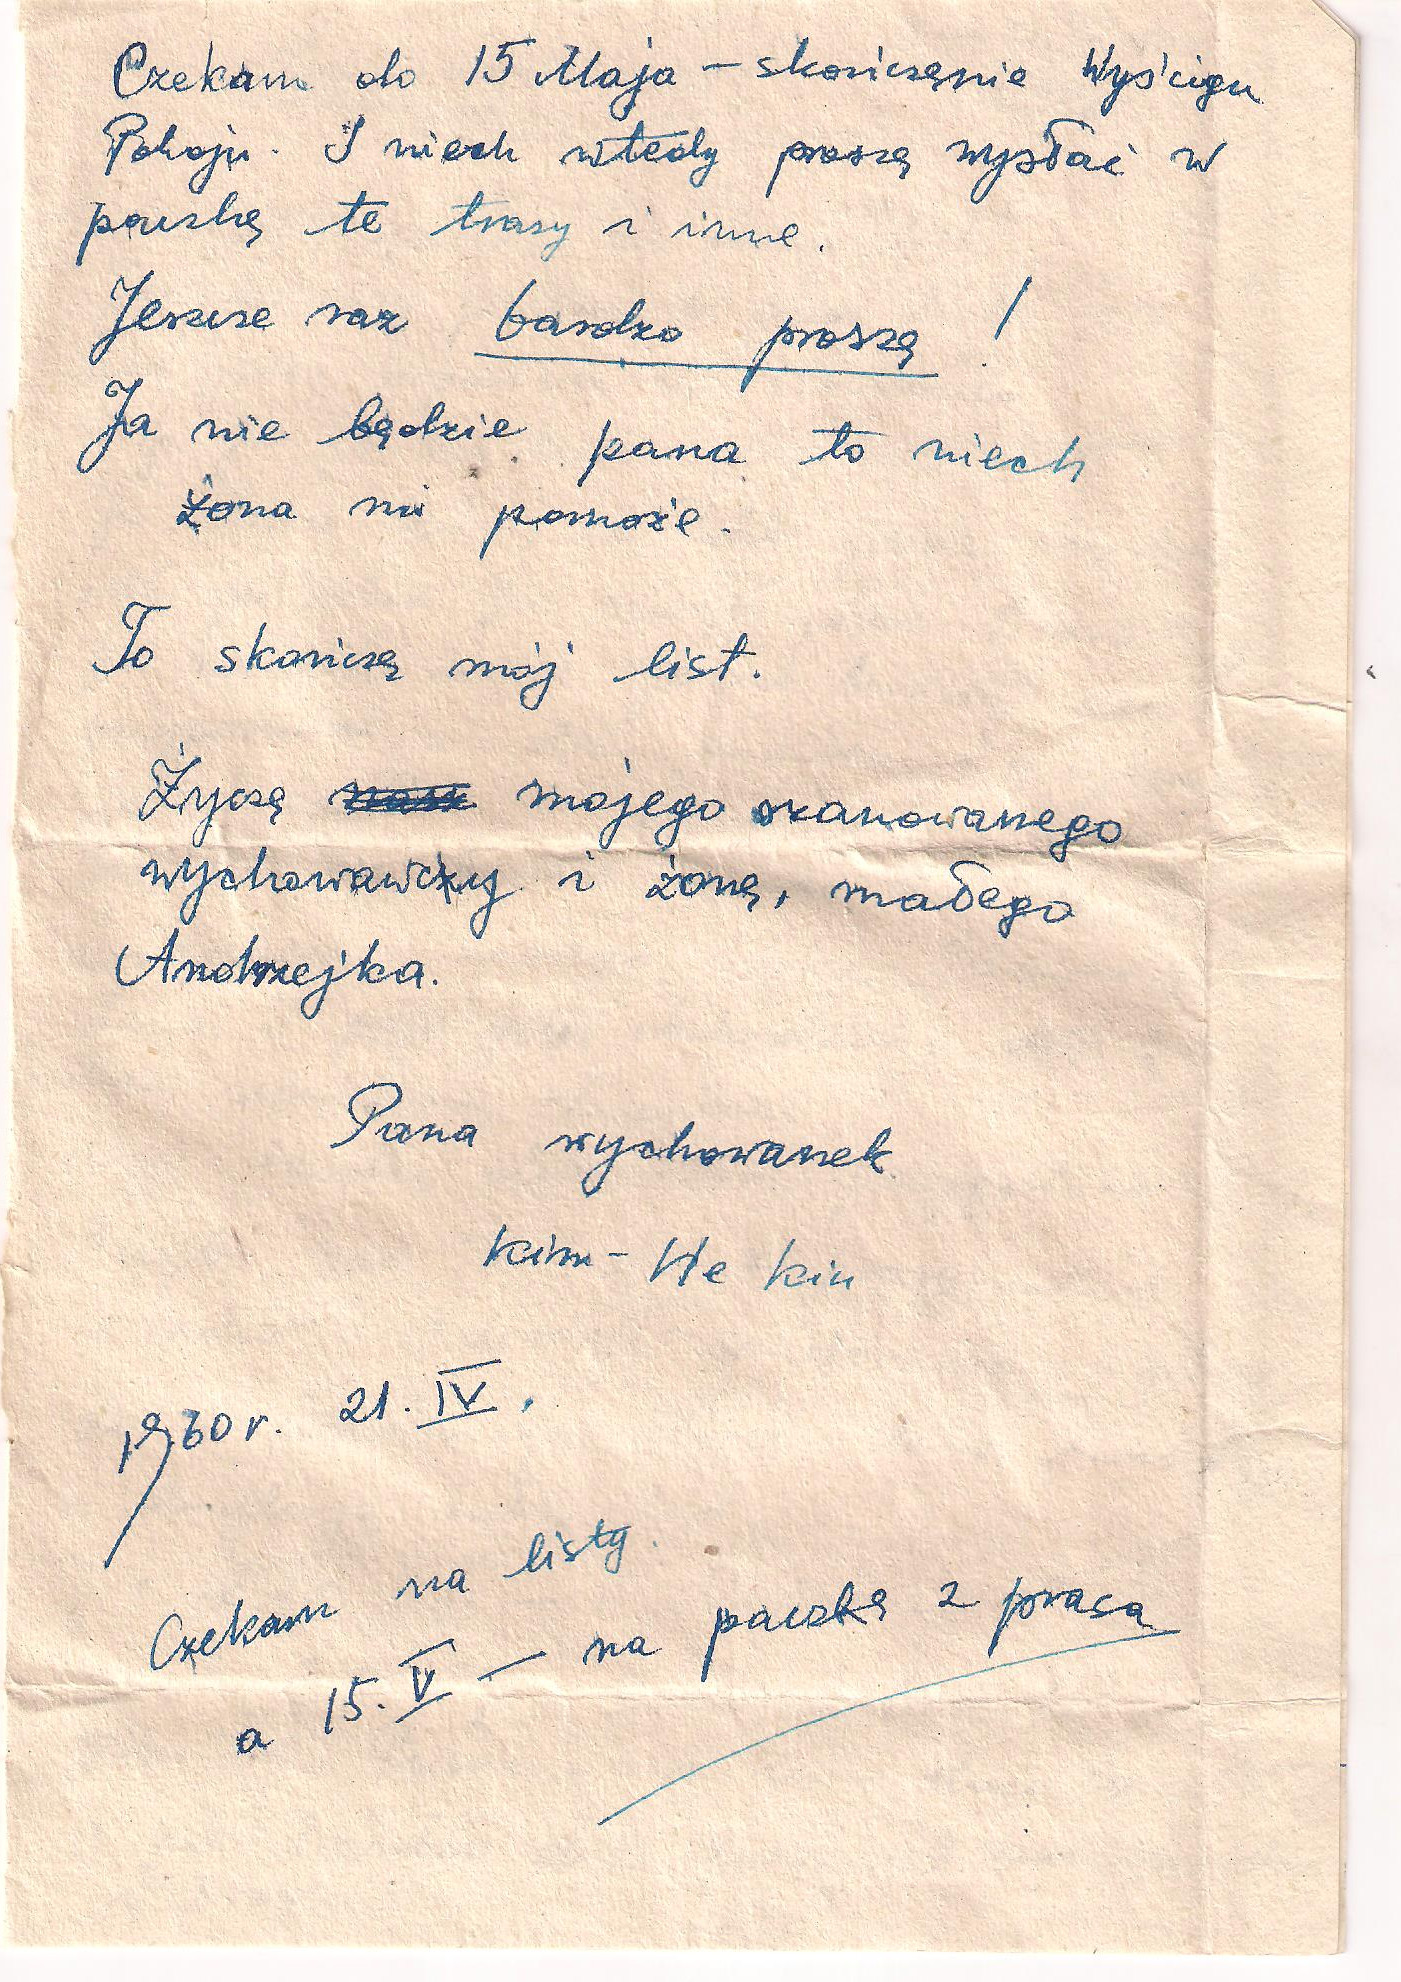 Czekam do 15 Maja – skończęnie Wyścigu
Pokoju. I niech wtedy proszę wysłać w
paczkę te trasy i inne.
Jeszcze raz bardzo proszę !
Ja nie będzie pana to niech
żona mi pomoże.
To skończę mój list.
Życzę mojego szanowanego
wychowawczy i żonę, małego
Andrzejka.
Pana wychowanek
Kim – He Kiu
1960 r. 21. IV.
Czekam na listy.
a 15. V — na paczkę z prasa